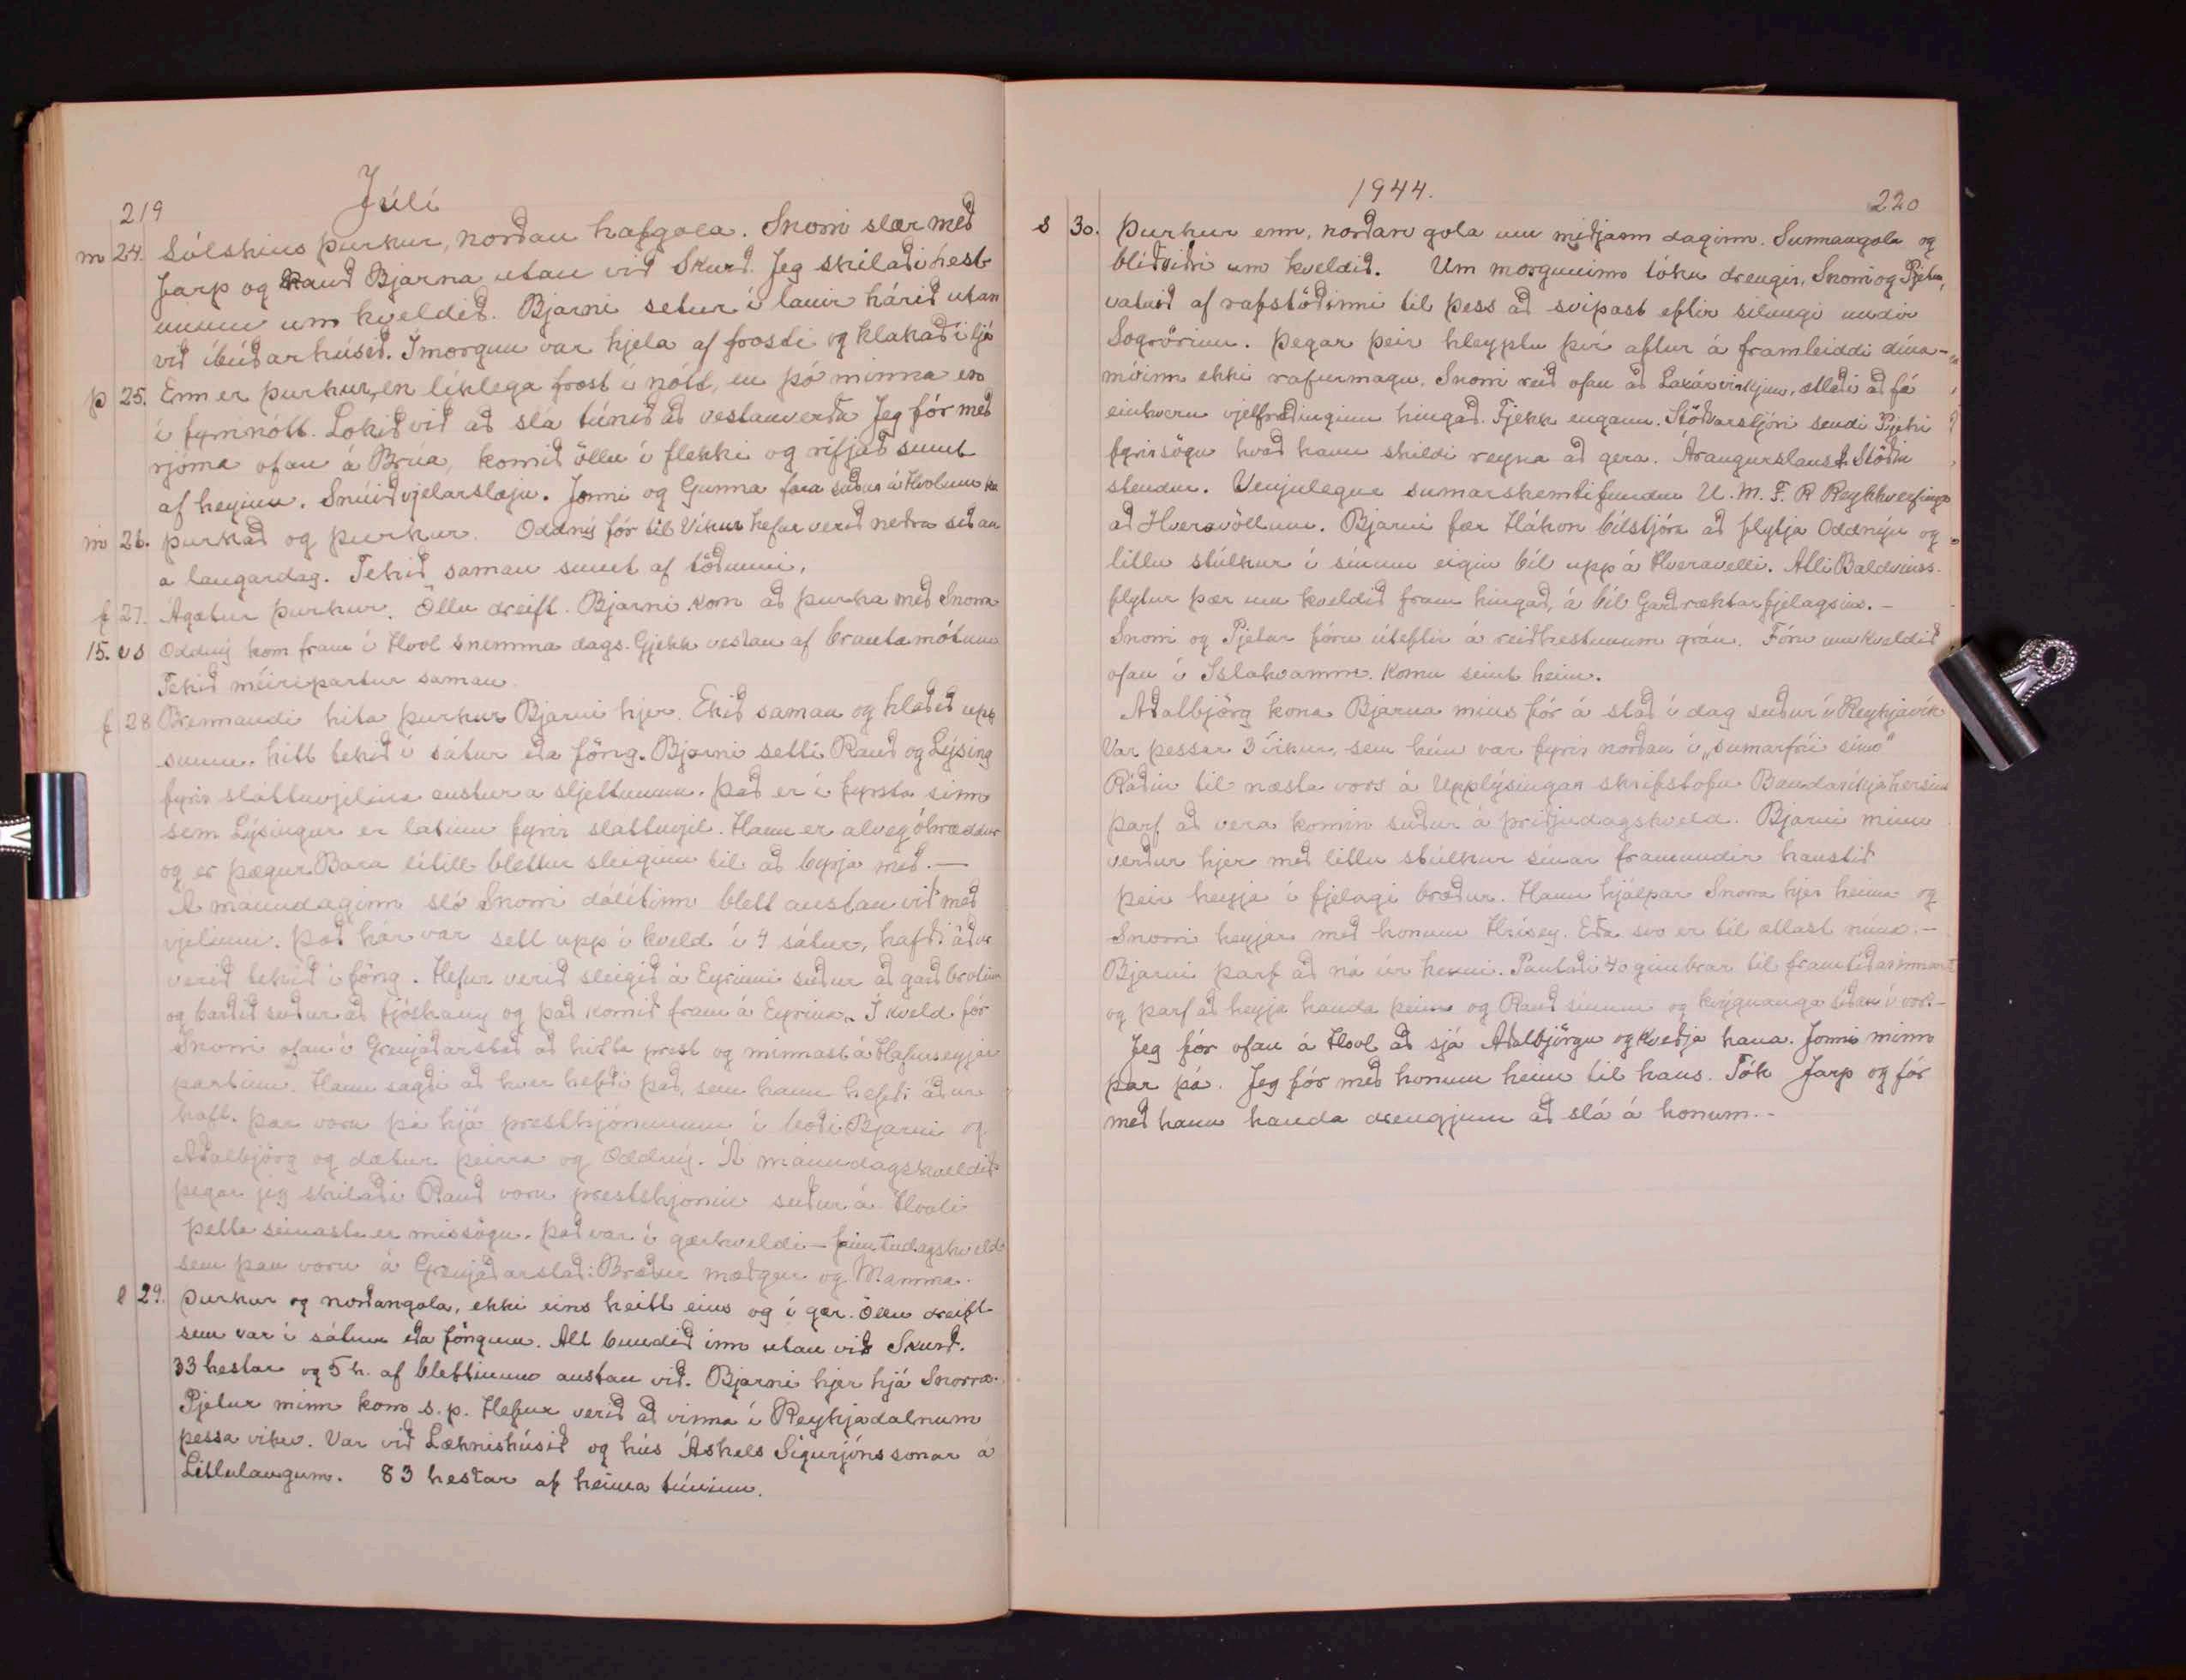 219 Júlí
m 24. Sólskins þurkur, norðan hafgola. Snorri slær með
Jarp og Rauð Bjarna utan við Skurð. Jeg skilaði hest
inum um kveldið. Bjarni setur í lanir hárið utan
við íbúðarhúsið. Í morgun var hjela af frosti og klakað í ljá
þ 25. Enn er þurkur, en líklega frost í nótt, en þó minna en
í fyrrinótt. Lokið við að slá túnið að vestanverðu Jeg fór með
rjóma ofan á Brúa, komið öllu í flekki og rifjað sumt
af heyinu. Snúið vjelarslæju. Jonni og Gunna fara suður á Hvolinn
m 26. þurkað og þurkur. Oddný fór til Víkur hefur verið neðra síðan
a laugardag. Tekið saman sumt af töðunni.
f 27. Ágætur þurkur. Öllu dreift. Bjarni kom að þurka með Snorra
15. vs Oddný kom fram í Hvol snemma dags. Gjekk vestan af brautamótum
Tekið meiripartur saman
f 28 Brennandi hita þurkur Bjarni hjer. Ekið saman og hlaðið upp
sumu. hitt tekið í sátur eða föng. Bjarni setti Rauð og Lýsing
fyrir sláttuvjelina austur a sljettunum. Það er í fyrsta sinn
sem Lýsingur er látinn fyrir sláttuvjel. Hann er alveg óhræddur
og er þægur. Bara lítill blettur sleginn til að byrja með. —
Á mánudaginn sló Snorri dálítinn blett austan við með
vjelinni. Það hár var sett upp í kveld í 4 sátur, hafði áður
verið tekið í föng. Hefur verið slegið á Eyrinni suður að garðbrotinu
og barðið suður að fjóshaug og það komið fram á Eyrina. Í kveld fór
Snorri ofan í Grenjaðarstað að hitta prest og minnast á Hafurseyjar
partinn. Hann sagði að hver hefði það, sem hann hefði áður
haft. Þar voru þá hjá presthjónunum í boði Bjarni og
Aðalbjörg og dætur þeirra og Oddný. Á mánudagskveldið
þegar jeg skilaði Rauð voru prestshjónin suður á Hvoli
Þetta seinasta er missögn. Það var í gærkveldi — fimtudagskveld
sem þau voru á Grenjaðarstað: Bræður mæðgur og Mamma.
l 29. Þurkur og norðangola, ekki eins heitt eins og í gær. Öllu dreift
sem var í sátum eða föngum. Alt bundið inn utan við Skurð.
33 hestar og 5 h. af blettinum austan við. Bjarni hjer hjá Snorra.
Pjetur minn kom s.p. Hefur verið að vinna í Reykjadalnum
þessa viku. Var við Læknishúsið og hús Áskels Sigurjónssonar á
Litlulaugum. 83 hestar af heima túninu.
1944. 220
s 30. Þurkur enn, norðan gola um miðjann daginn. Sunnangola og
blíðviðri um kveldið. Um morguninn tóku drengir, Snorri og Pjetur,
vatnið af rafstöðinni til þess að svipast eftir silungi undir
Sogrörinu. Þegar þeir hleyptu því aftur á framleiddi dína-
móinn ekki rafurmagn. Snorri reið ofan að Laxárvirkjun, ætlaði að fá
einhvern vjelfræðinginn hingað. Fjekk engann. Stöðvarstjóri sendi Pjetri
fyrirsögn hvað hann skildi reyna að gera. Árangurslaust. Stöðin
stendur. Venjulegur sumarskemtifundur U.M.F. R Reykhverfinga
að Hveravöllum. Bjarni fær Hákon bílstjóra að flytja Oddnýju og
litlu stúlkur í sínum eigin bíl upp á Hveravelli. Atli Baldvinss.
flytur þær um kveldið fram hingað, á bíl Garðræktarfjelagsins. —
Snorri og Pjetur fóru úteftir á reiðhestunum gráu. Fóru um kveldið
ofan í Íslakvamm. Komu seint heim.
Aðalbjörg kona Bjarna míns fór á stað í dag suður í Reykjavík
Var þessar 3 vikur, sem hún var fyrir norðan í „sumarfríi sínu"
Ráðin til næsta vors á Upplýsingar skrifstofu Bandaríkjahersins
Þarf að vera komin suður á þriðjudagskveld. Bjarni minn
verður hjer með litlu stúlkur sínar framundir haustið
þeir heyja í fjelagi bræður. Hann hjálpar Snorra hjer heima og
Snorri heyjar með honum Hrísey. Eða svo er til ætlast núna. —
Bjarni þarf að ná úr henni. Pantaði 40 gimbrar til framtíðarinnar
og þarf að heyja handa þeim og Rauð sínum og kvígu síðan í vor. —
Jeg fór ofan á Hvol að sjá Aðalbjörgu og kveðja hana. Jonni minn
þar þá. Jeg fór með honum heim til hans. Tók Jarp og fór
með hann handa drengjum að slá á honum. -